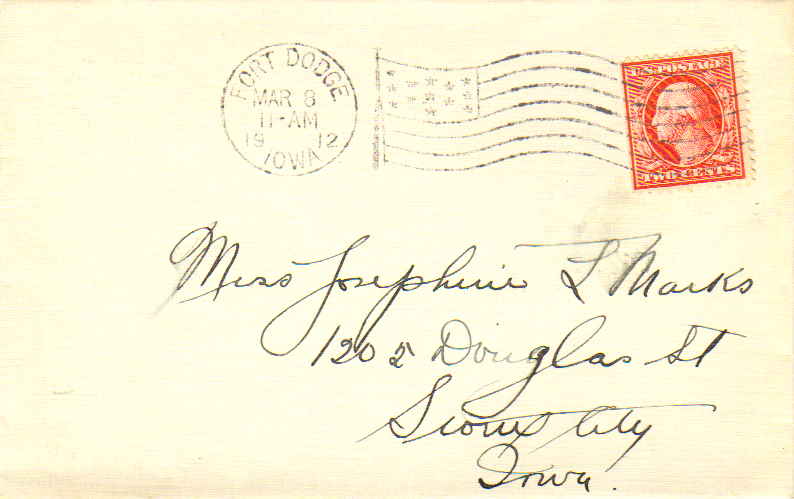 FORT DODGE
MAR 8
11-AM
19 12
IOWA
U.S. POSTAGE
TWO CENTS
Miss Josephine L Marks
1205 Douglas St
Sioux City
Iowa.